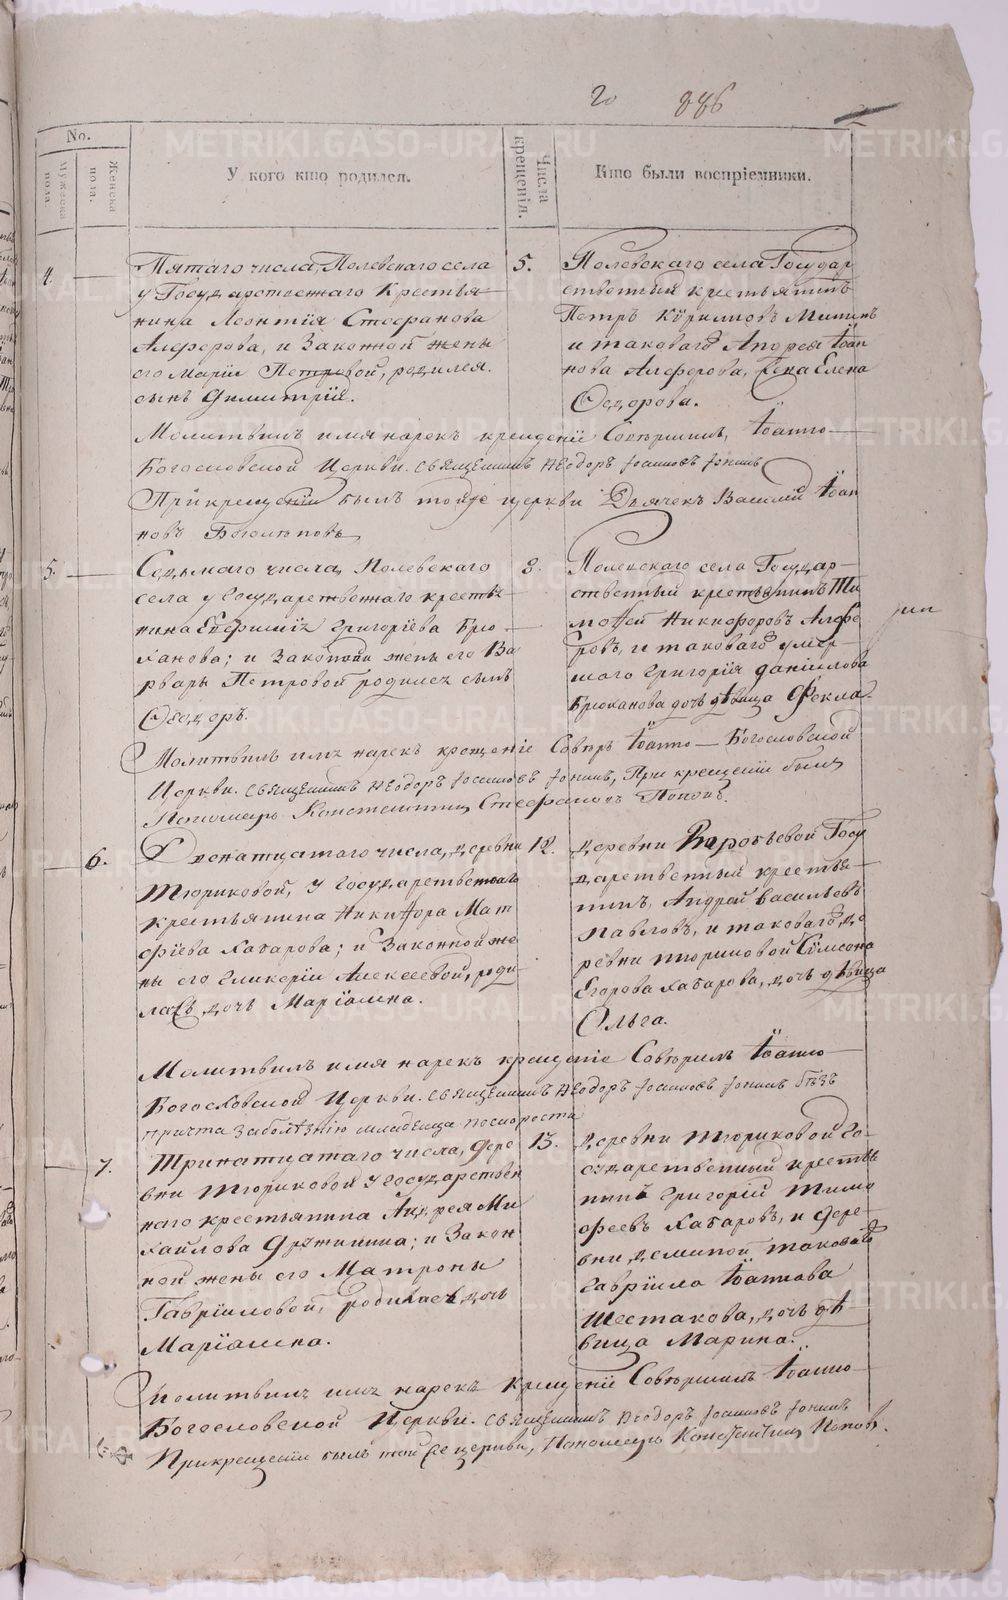 го 886
No.
Мужеска пола.
Женска пола.
У кого кто родился.
Числа крещенiя.
Кто были воспрiемники.
4.
Пятаго числа, Полевскаго села
у Государственнаго Крестья
нина Леонтiя Стефанова
Алферова, и Законной жены
его Марiи Петровой, родился.
сынъ Димитрiй.
5.
Полевскаго села Государ
ственный крестьянинъ
Петръ Кириловъ
и таковагѡ Андрея Iѡан
нова Алферова, жена Елена
Ѳедорова.
Молитвилъ имя нарекъ крещенiе Совершилъ, Iѡанно
Богословской Церкви. священникъ Ѳеодоръ Iоанновъ
При крещенiи былъ тойже церкви Дьячекъ Василiй Iѡан
новъ
5.
Седьмаго числа, Полевскаго
села у Государственнаго кресть
нина Евфимiя Григорiева Брю
ханова; и Законной жены его Ва
рвары Петровой родился сынъ
Ѳеодоръ.
8.
Полевскаго села Государ
ственный крестьянинъ Ти
моѳей Никифоровъ Алфе
ровъ, и таковагѡ умер
шаго Григорiя Данiилова
Брюханова дочь дѣвица Фекла.
Молитвилъ имя нарекъ крещенiе Соверъ Iѡанно Богословской
Церкви. священникъ Ѳеодоръ Iоанновъ При крещенiи былъ
Пономарь Константинъ Стефановъ Поповъ.
6.
Двенатцатаго числа, деревни
Тюриковой, у государственнаго
крестьянина Никифора Мат
фiева Хабарова; и Законной же
ны его Гликерiи Алексеевой, роди
лась дочь Марiамна.
12.
деревни Воробьевой Госу
дарственный крестья
нинъ, Андрей васильевъ
Павловъ, и таковагѡ де
ревни тюриковой Сiмеона
Егорова Хабарова, дочь дѣвица
Ольга.
Молитвилъ имя нарекъ крещенiе Соверилъ Iѡанно
Богословской Церкви. священникъ Ѳеодоръ Iоанновъ безъ
причта за болѣзнiю младенца
7.
Тринатцатаго числа, дере
вни тюриковой у государствен
наго крестьянина Андрея Ми
хайлова Дружинина; и Закон
ной жены его Матроны
Гаврiиловой, родилась дочь
Марiамна.
13.
деревни тюриковой Го
сударственный крестья
нинъ Григорiй Тимо
феевъ Хабаровъ, и дере
вни деминой таковагѡ
Гаврiила Iѡаннова
Шестакова, дочь дѣ
вица Марина.
Молитвилъ имя нарекъ Крещенiе Совершилъ Iѡанно
Богословской Церкви. священникъ Ѳеодоръ Iоанновъ
При крещенiи былъ той же церкви, Пономарь Константинъ Поповъ.
METRIKI.GASO-URAL.RU